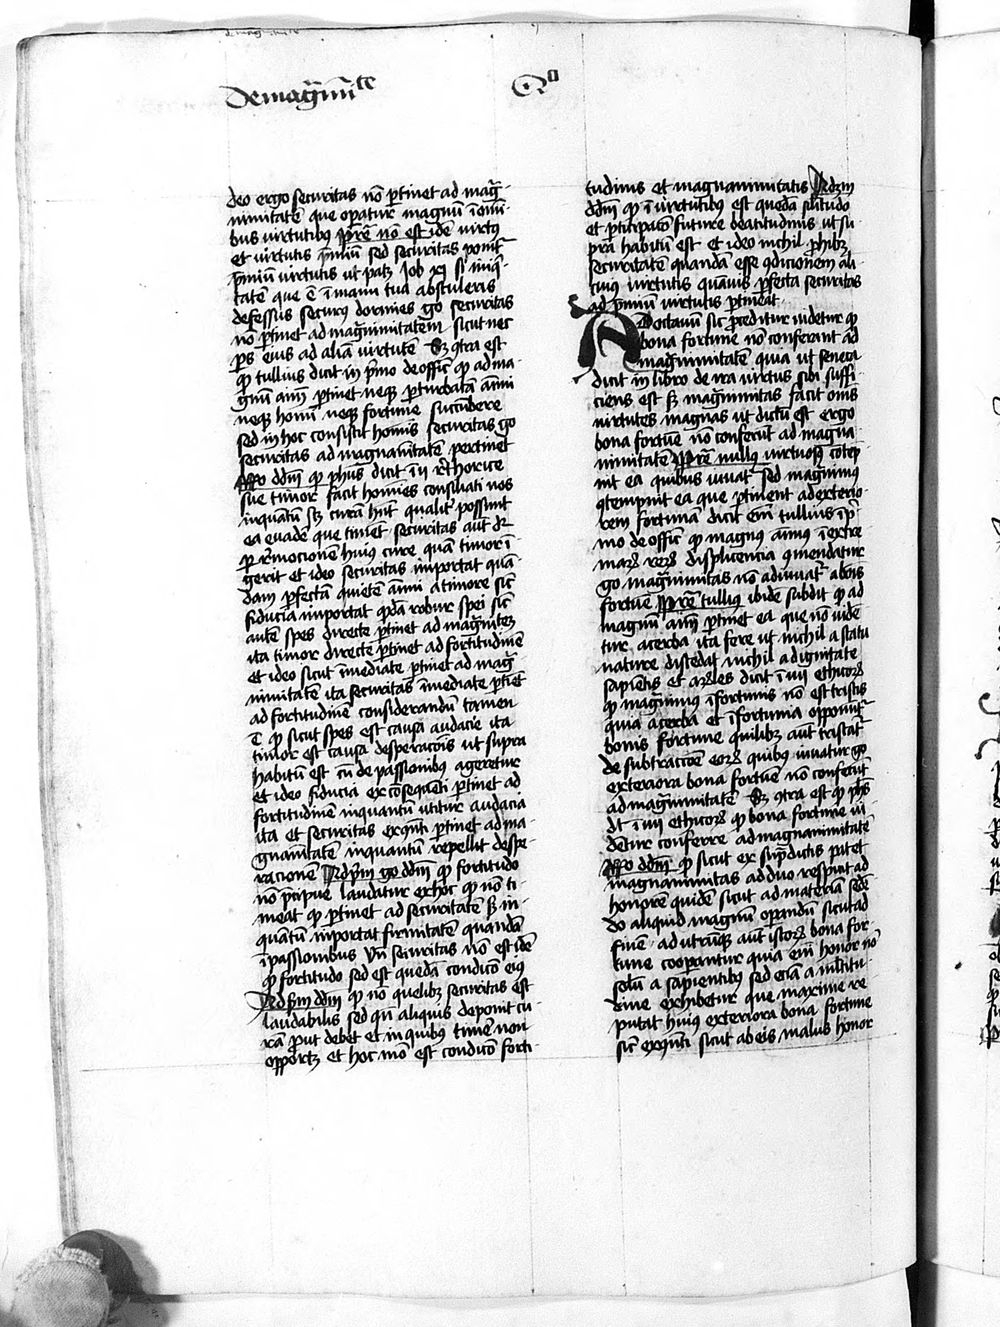 Demagnimi^te Q^o
deo ergo securitas nō p̄tinet ad mag̃
nimitatē que opatur magnū ī oni
bus virtutibꝰ Pret̄ nō est idē virtꝰ
et virtutis p̄miū sed securitas ponit᷑
p̄miū virtutis ut patꝫ Job xj si īniq̄
tatē que ē ī manu tua abstuleris
defessus securꝰ dormies go securitas
nō p̄tinet ad mag̃nimitatem sicut nec
ꝓs eius ad aliā virtutē Sꝫ ꝯtra est
ꝙ tullius dicit in p̄mo de offic̄ ꝙ ad ma
gnū aīm p̄tinet neqꝫ p̄turbatōi aīmi
neqꝫ homī neqꝫ fortune succūbere
sed in hoc consistit homīs securitas go
securitas ad magnanītatē pertinet
Rn̄o dd̄m ꝙ ph̄us dicit ī ij rethorice
sue timor facit homīes consiliati nos
inquātū sꝫ curā hn̄t qualit᷑ possunt
ea evadē que timēt securitas aūt dr̄
ꝑ remocionē huiꝰ cure quā timor ī
gerit et ideo securitas importat quā
dam ꝑfectā quietē aīmi a timore sic̄
fiducia importat qd̄a robur spei sic̄
autē spes directe p̄tinet ad mag̃nitēꝫ
ita timor directe p̄tinet ad fortitudinē
et ideo sicut īmediate p̄tinet ad mag̃
nimitatē ita securitas īmediate p̄tiēt
ad fortitudinē considerandū tamen
ē ꝙ sicut spes est causa audacie ita
timor est causa desperacōis ut supra
habitū est cū de passionibus ageretur
et ideo fiducia ex cōsequēti p̄tinet ad
fortitudinē inquantū utitur audacia
ita et securitas exqn̄ti p̄tinet ad ma
gnanītatē inquantū repellit despe
racionē Ad p̄m go dd̄m ꝙ fortitudo
nō p̄cipue laudatur ex hoc ꝙ nō ti
meat ꝙ p̄tinet ad securitatē sꝫ in
quātū importat firmitatē quandā
ī passionibus Vn̄ securitas nō est idē
ꝙ fortitudo sed est quedā condicō eiꝰ
Ad scd̄m dd̄m ꝙ nō quelibꝫ securitas est
laudabilis sed qn̄ aliquis deponit cu
rā ꝓut debet et in quibus timē non
oportꝫ et hoc mō est condicō forti
tudinis et magnanimitatis Ad 3m
dd̄m ꝙ ī virtutibus est quedā sil̄itudo
et p̄ticipatō future beatitudinis ut su
pra habitū est et ideo nichil ꝓhibꝫ
securitatē quandā esse ꝯdicionem ali
cuiꝰ virtutis quāuis ꝑfecta securitas
ad p̄miū virtutis p̄tineat
Ad octauū sic p̄ceditur uidetur ꝙ
bona fortune nō conferant ad
magnimitatē quia ut seneca
dicit in libro de ira virtus sibi suffi
ciens est sꝫ mag̃nimitas facit oīns
virtutes magnas ut dictū est ergo
bona fortūe nō conferūt ad magna
nimitatē Pret̄ nullꝰ virtuosꝰ cōtep
nit ea quibus iuvat᷑ sed mag̃nimus
ꝯtempnit ea que p̄tinent ad exterio
rem fortunā dicit enī tullius ī p̄
mo de offic̄ ꝙ magnus aīmus ī exte
marꝝ rerꝝ displicencia ꝯmendatur
go mag̃nimitas nō adiuuat᷑ a bōis
fortūe Pret̄ tulliꝰ ibidē subdit ꝙ ad
magnū aīm p̄tinet ea que nō uidē
tur acerba ita fere ut nichil a statu
nature discedat nichil a dignitate
sapiētis et arꝲles dicit ī iiij ethicorꝝ
ꝙ mag̃nimus ī fortunis nō est tristis
quia acerba et īfortunia opponūt᷑
bonis fortune quilibꝫ aūt tristat᷑
de subtractōe eorꝝ quibꝰ iuuatur go
exteriora bona fortūe nō conferūt
ad mag̃nimitatē Sꝫ ꝯtra est ꝙ ph̄s
dt̄ ī iiij ethicorꝝ ꝙ bona fortune ui
dētur conferre ad magnanimitatē
Rn̄o dd̄m ꝙ sicut ex sup̄dictis patet
magnanimitas ad duo respicit ad
honorē quidē sicut ad materiā sed ē
do aliquid magnū opandū sicut ad
finē ad utrūqꝫ aūt istorꝝ bona for
tune cooperantur quia enī honor nō
solū a sapientibꝰ sed eciā a multitu
dine exhibetur que maxime re
putat huiꝰ exteriora bona fortune
sic̄ exqn̄ti sicut ab eis maius honor